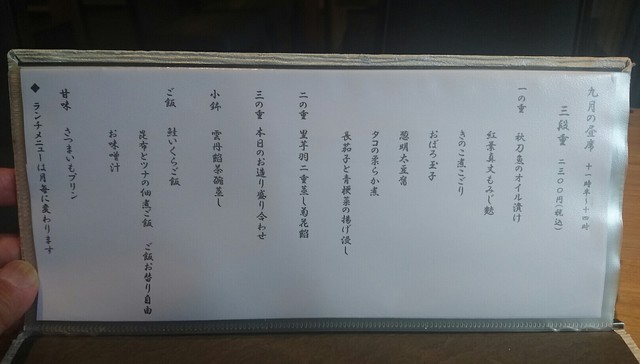 九月の昼席 十一時半~十四時
三段重 二三〇〇円(税込)
一の重 秋刀魚のオイル漬け
紅葉真丈もみじ麩
きのこ煮こごり
おぼろ玉子
明太豆腐
タコの柔らか煮
長茄子と青梗菜の揚げ浸し
二の重 里芋羽二重蒸し菊花餡
三の重 本日のお造り盛り合わせ
小鉢 雲丹餡茶碗蒸し
ご飯 鮭いくらご飯
昆布とツナの佃煮ご飯 ご飯お替り自由
お味噌汁
甘味 さつまいもプリン
◆ ランチメニューは月毎に変わります